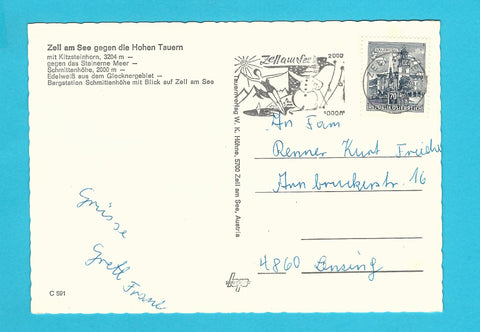 Zell am See gegen die Hohen Tauern
mit Kitzsteinhorn, 3204 m —
gegen das Steinerne Meer -
Schmittenhöhe, 2000 m -
Edelweiß aus dem Glocknergebiet -
Bergstation Schmittenhöhe mit Blick auf Zell am See
Zell am See
2000
1000m
Tauernverlag W. K. Hühne, 5700 Zell am See, Austria
An Fam
Renner Kurt
Grüsse
Gretl Franz
4860 Lenzing
C 591